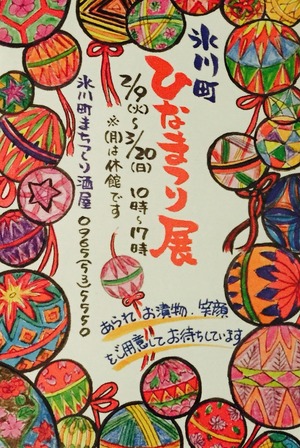 氷川町
ひなまつり展
2/9(火)～3/20(日) 10時～17時
※(月)は休館です
氷川町まちつくり酒屋 0965(53)5550
あられ、お漬物、笑顔
をご用意してお待ちしています